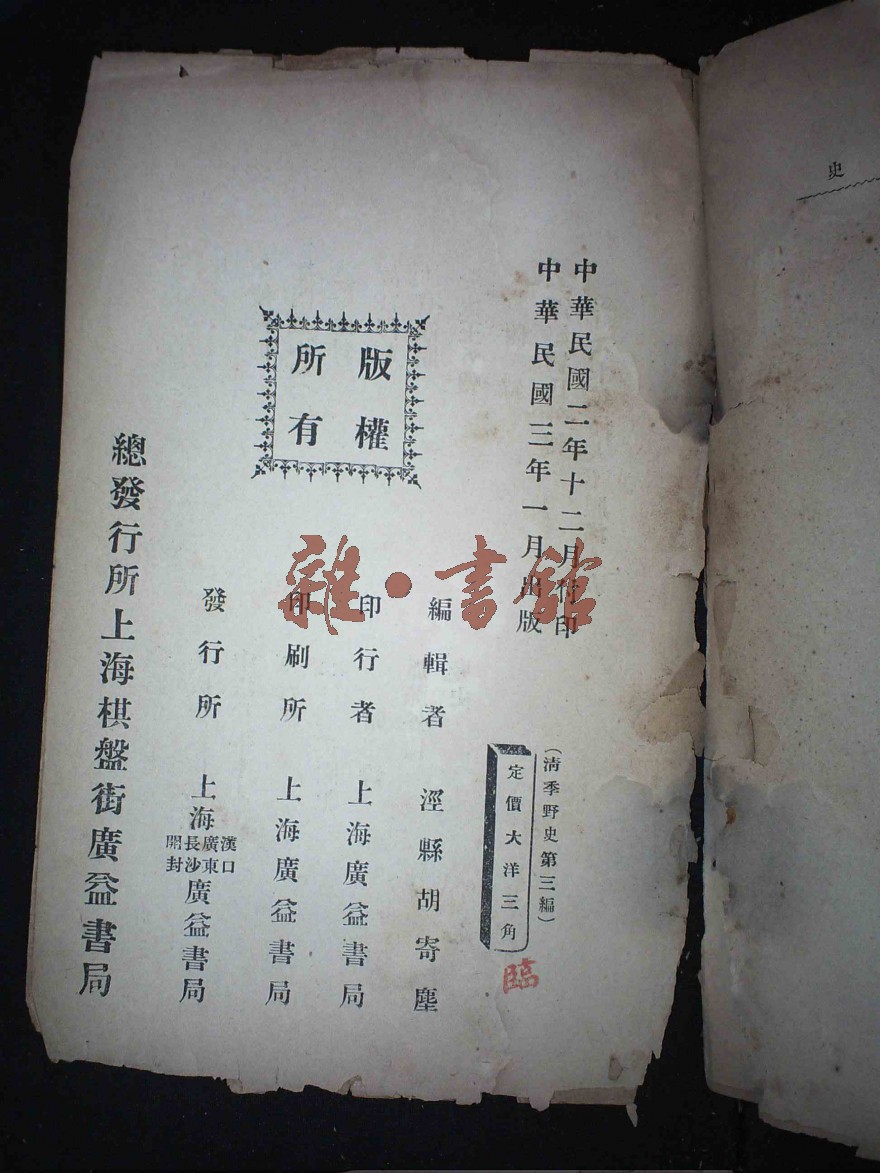 史
中華民國二年十二月付印
中華民國三年一月出版
(清季野史第三編)
定價大洋三角
臨
版權
所有
編輯者 涇縣胡寄塵
印行者 上海廣益書局
印刷所 上海廣益書局
發行所 上海漢口廣東長沙開封廣益書局
總發行所上海棋盤街廣益書局
雜·書館